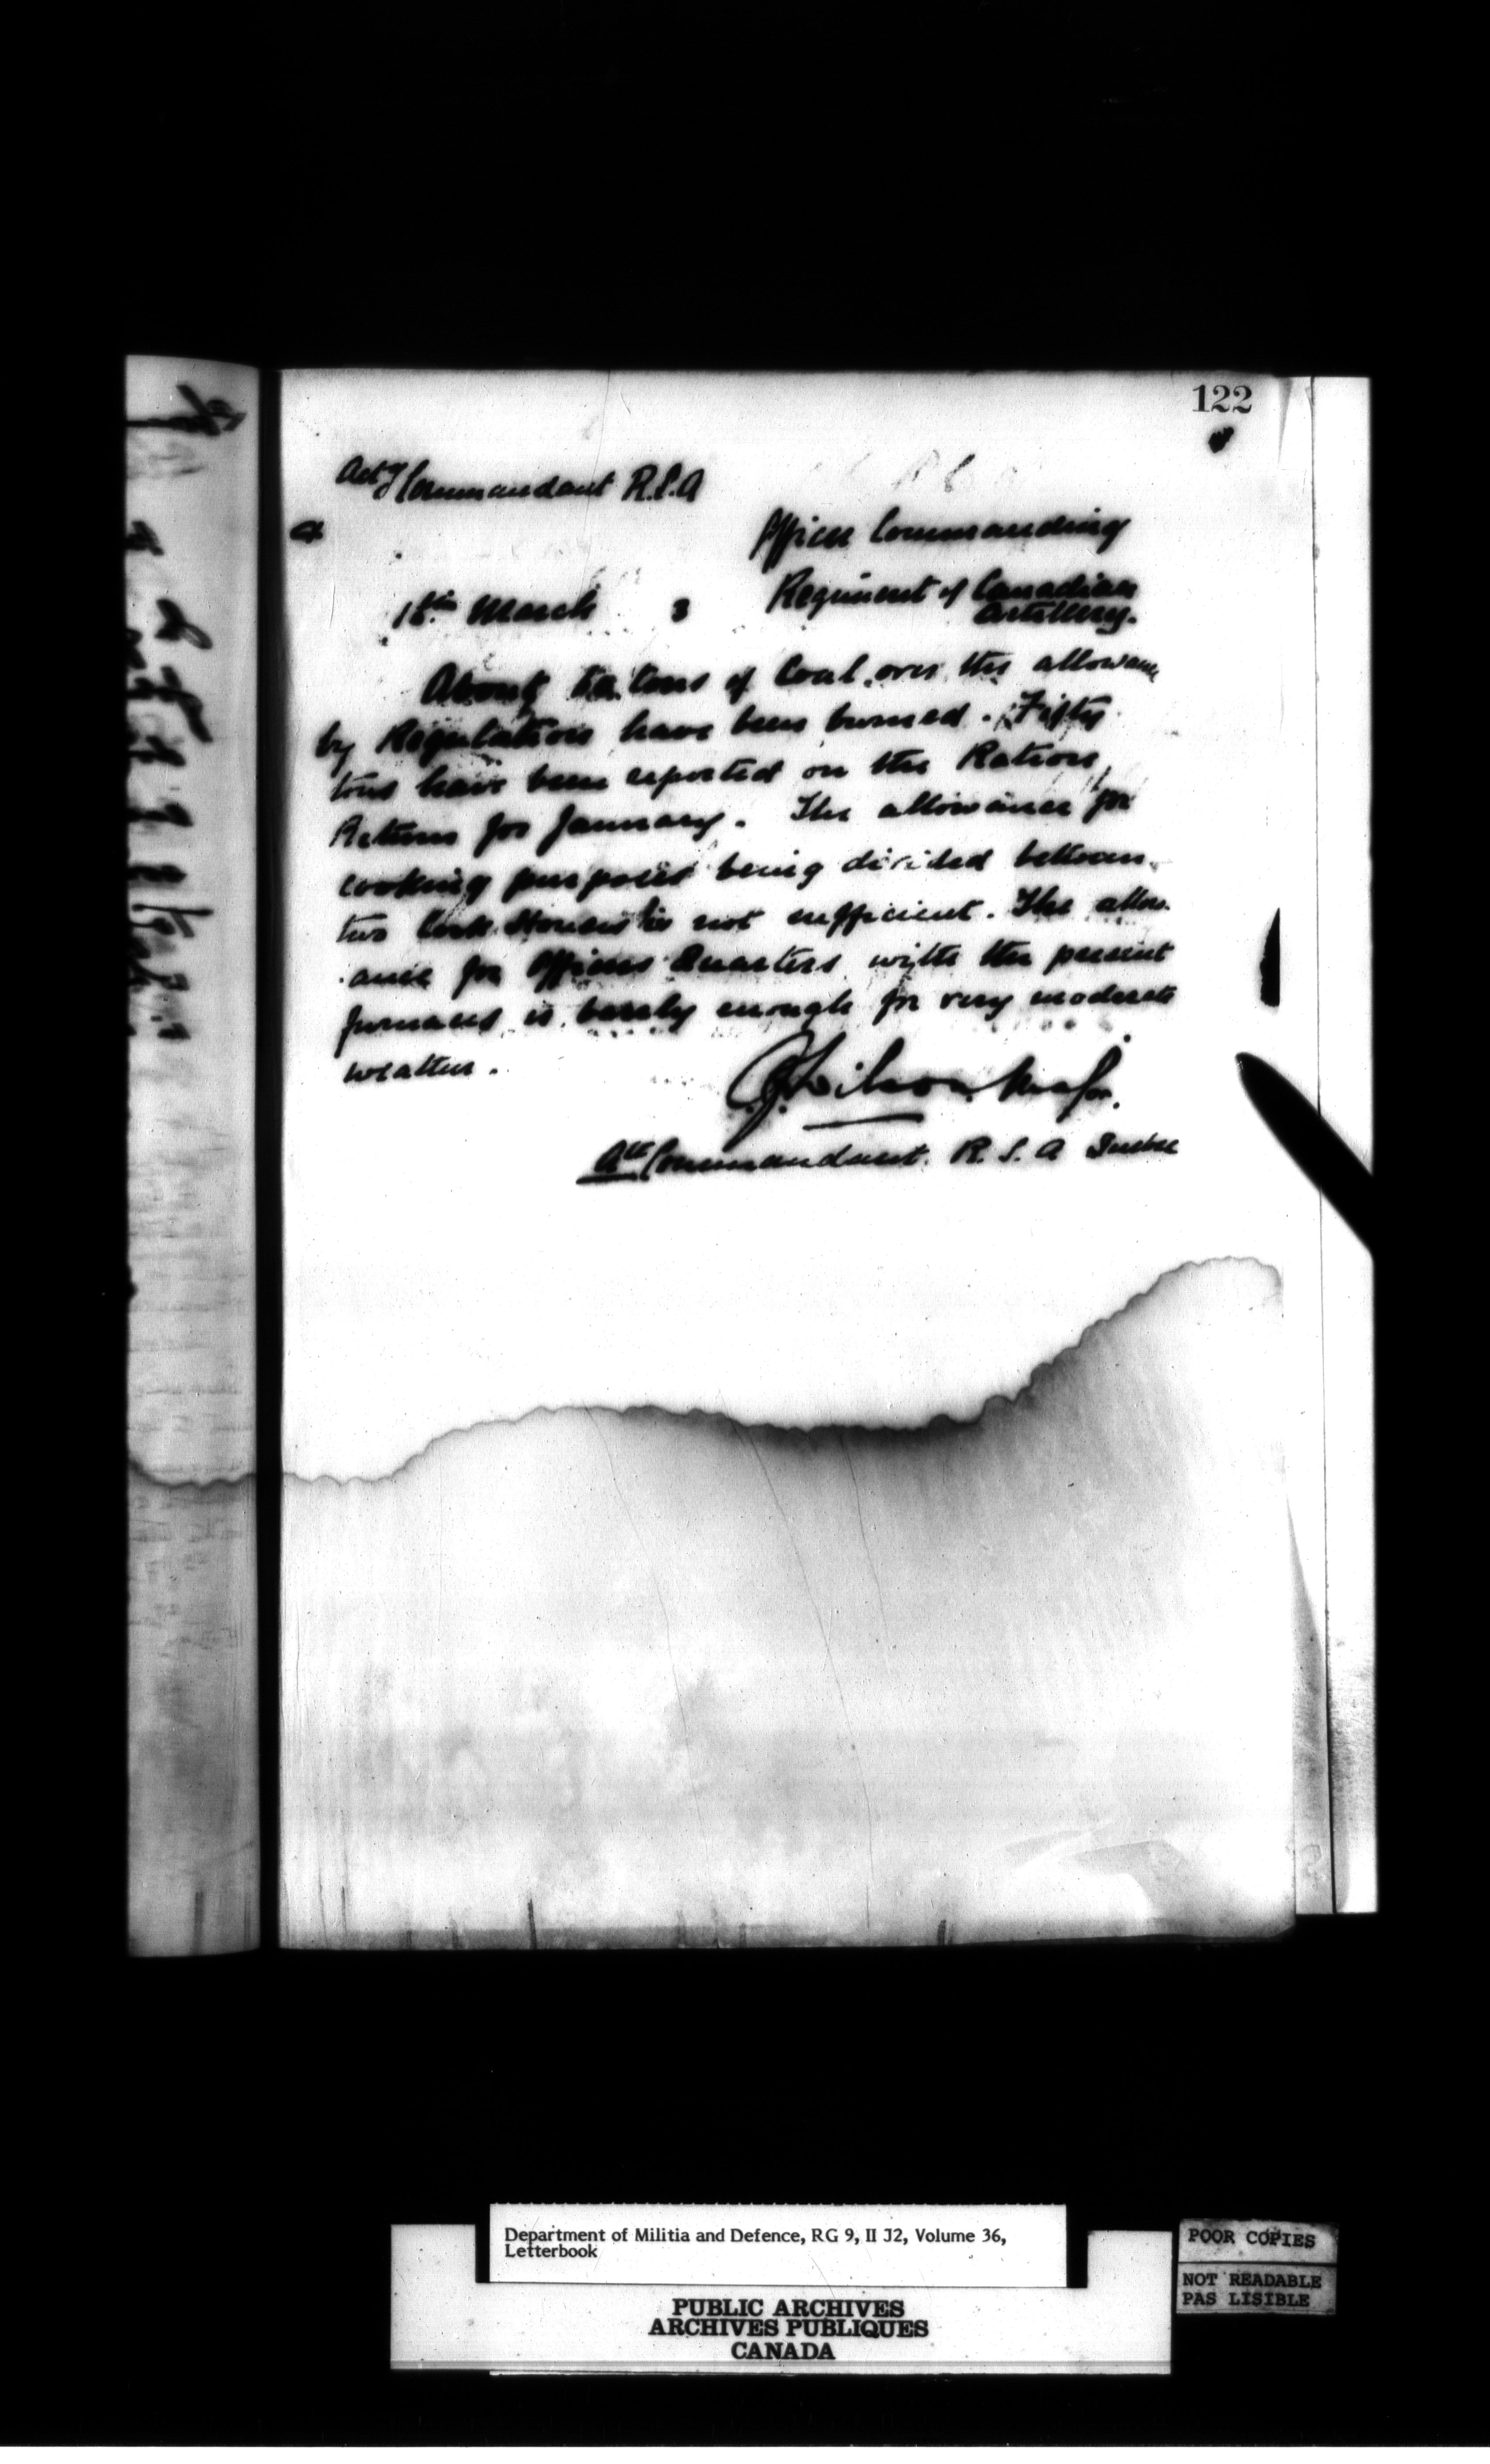 122
Actg Commandant R.S.A
Officer Commanding
Regiment of Canadian
Artillery.
March 3
About ten tons of Coal over the allowance
by Regulation have been burned. Fifty
tons have been reported on the Ration
Return for January. The allowance for
cooking purposes being divided between
two Cook Houses is not sufficient. The allow
ance for Officers Quarters with the present
furnaces is barely enough for very moderate
weather.
Wilson Major.
Commandant. R.S.A Quebec
Department of Militia and Defence, RG 9, II J2, Volume 36,
Letterbook
PUBLIC ARCHIVES
ARCHIVES PUBLIQUES
CANADA
POOR COPIES
NOT READABLE
PAS LISIBLE